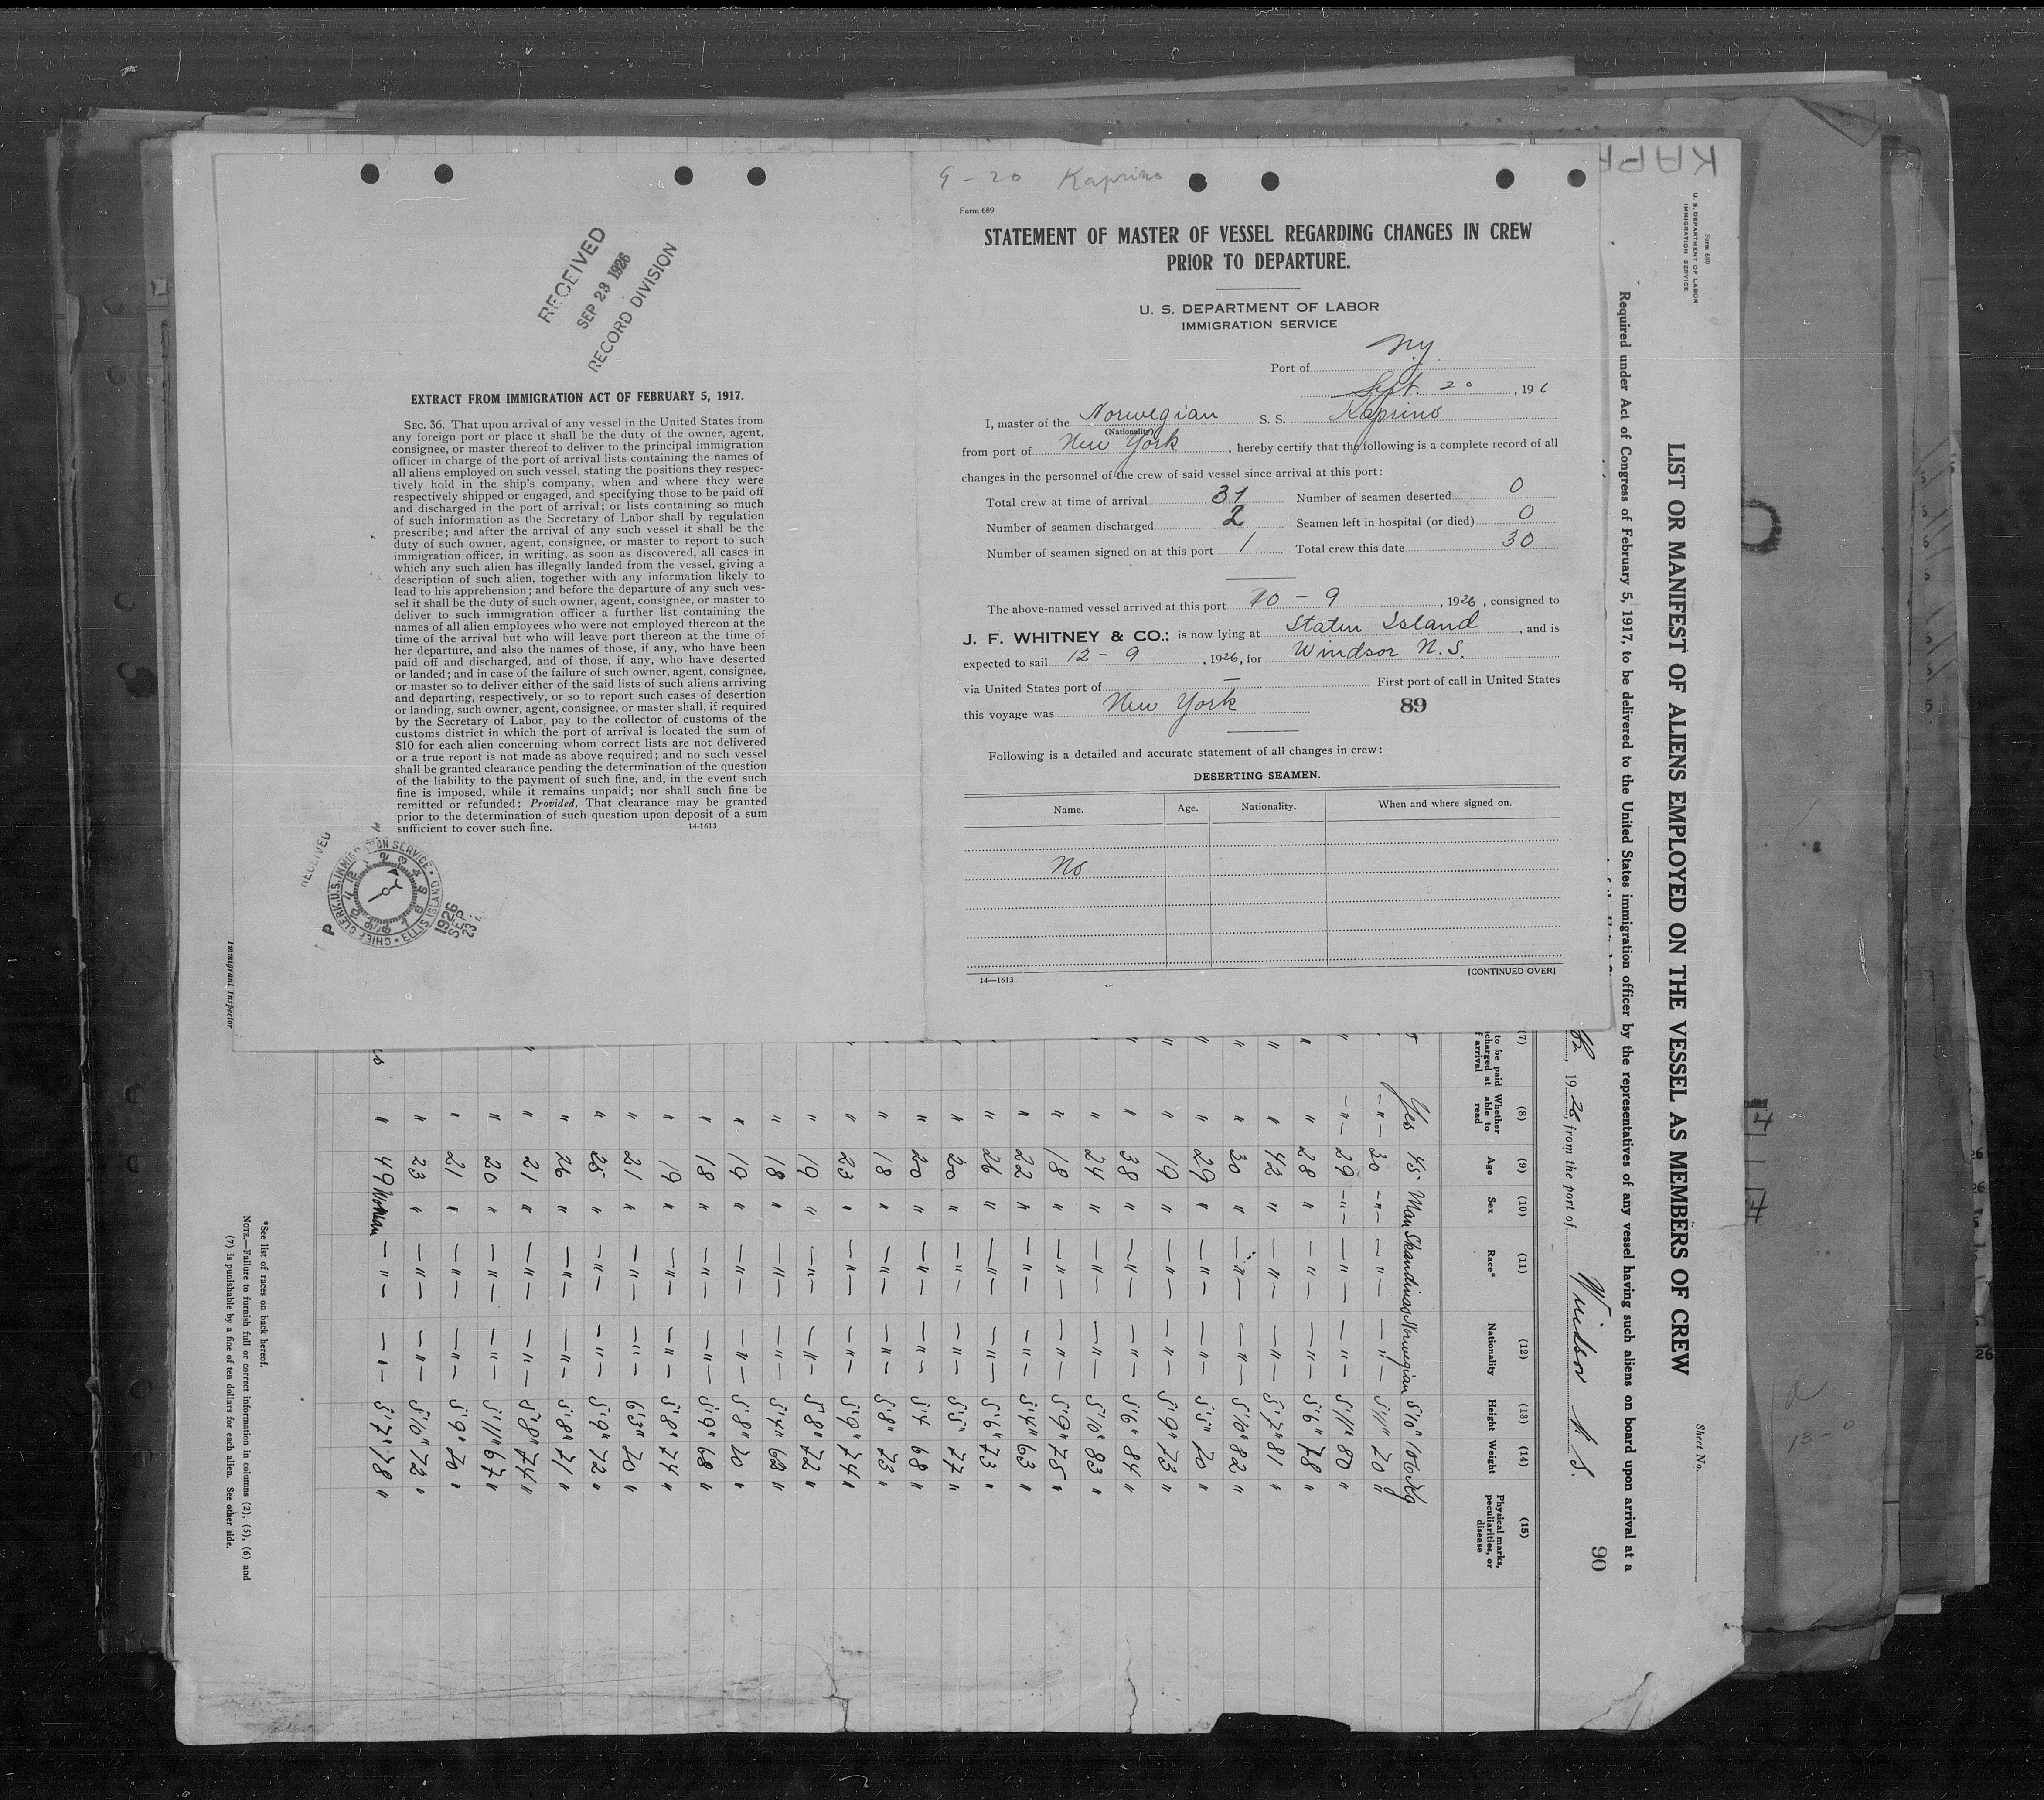 9 - 20 Kaprino
Form 689
STATEMENT OF MASTER OF VESSEL REGARDING CHANGES IN CREW
PRIOR TO DEPARTURE.
U. S. DEPARTMENT OF LABOR
IMMIGRATION SERVICE
Port of N.Y.
Sept. 20, 1926
I, master of the Norwegian S. S. Kaprino
(Nationality)
from port of New York, hereby certify that the following is a complete record of all
changes in the personnel of the crew of said vessel since arrival at this port:
Total crew at time of arrival 31 Number of seamen deserted 0
Number of seamen discharged 2 Seamen left in hospital (or died) 0
Number of seamen signed on at this port 1 Total crew this date 30
The above-named vessel arrived at this port 10 - 9, 1926, consigned to
J. F. WHITNEY & CO.; is now lying at Staten Island, and is
expected to sail 12 - 9, 1926, for Windsor N.S.
via United States port of — First port of call in United States
this voyage was New York
89
Following is a detailed and accurate statement of all changes in crew:
DESERTING SEAMEN.
Name. Age. Nationality. When and where signed on.
No
14—1613 [CONTINUED OVER]
RECEIVED
SEP 23 1926
RECORD DIVISION
EXTRACT FROM IMMIGRATION ACT OF FEBRUARY 5, 1917.
SEC. 36. That upon arrival of any vessel in the United States from
any foreign port or place it shall be the duty of the owner, agent,
consignee, or master thereof to deliver to the principal immigration
officer in charge of the port of arrival lists containing the names of
all aliens employed on such vessel, stating the positions they respec-
tively hold in the ship's company, when and where they were
respectively shipped or engaged, and specifying those to be paid off
and discharged in the port of arrival; or lists containing so much
of such information as the Secretary of Labor shall by regulation
prescribe; and after the arrival of any such vessel it shall be the
duty of such owner, agent, consignee, or master to report to such
immigration officer, in writing, as soon as discovered, all cases in
which any such alien has illegally landed from the vessel, giving a
description of such alien, together with any information likely to
lead to his apprehension; and before the departure of any such ves-
sel it shall be the duty of such owner, agent, consignee, or master to
deliver to such immigration officer a further list containing the
names of all alien employees who were not employed thereon at the
time of the arrival but who will leave port thereon at the time of
her departure, and also the names of those, if any, who have been
paid off and discharged, and of those, if any, who have deserted
or landed; and in case of the failure of such owner, agent, consignee,
or master so to deliver either of the said lists of such aliens arriving
and departing, respectively, or so to report such cases of desertion
or landing, such owner, agent, consignee, or master shall, if required
by the Secretary of Labor, pay to the collector of customs of the
customs district in which the port of arrival is located the sum of
$10 for each alien concerning whom correct lists are not delivered
or a true report is not made as above required; and no such vessel
shall be granted clearance pending the determination of the question
of the liability to the payment of such fine, and, in the event such
fine is imposed, while it remains unpaid; nor shall such fine be
remitted or refunded: Provided, That clearance may be granted
prior to the determination of such question upon deposit of a sum
sufficient to cover such fine. 14-1613
RECEIVED
CHIEF CLERK, U.S. IMMIGRATION SERVICE • ELLIS ISLAND •
1926
SEP
23
P
Form 680
U. S. DEPARTMENT OF LABOR
IMMIGRATION SERVICE
Sheet No.
LIST OR MANIFEST OF ALIENS EMPLOYED ON THE VESSEL AS MEMBERS OF CREW
Required under Act of Congress of February 5, 1917, to be delivered to the United States immigration officer by the representatives of any vessel having such aliens on board upon arrival at a
90
, 1926, from the port of Windsor N.S.
(7) (8) (9) (10) (11) (12) (13) (14) (15)
to be paid
charged at
f arrival
Whether able to read
Age
Sex
Race*
Nationality
Height
Weight
Physical marks, peculiarities, or disease
Yes 45 Man Skandinav Norwegian 5'10" 106 Kg
—"— 30 —"— —"— —"— 5'11" 70 "
—"— 29 —"— —"— —"— 5'11" 80 "
" 28 " —"— —"— 5'6" 78 "
" 42 " —"— —"— 5'7" 81 "
" 30 " —"— —"— 5'10" 82 "
" 29 " —"— —"— 5'5" 70 "
" 19 " —"— —"— 5'9" 73 "
" 38 " —"— —"— 5'6" 84 "
" 24 " —"— —"— 5'10" 83 "
" 18 " —"— —"— 5'9" 75 "
" 22 " —"— —"— 5'4" 63 "
" 26 " —"— —"— 5'6" 73 "
" 20 " —"— —"— 5'5" 77 "
" 20 " —"— —"— 5'4 68 "
" 18 " —"— —"— 5'8" 73 "
" 23 " —"— —"— 5'9" 74 "
" 19 " —"— —"— 5'8" 72 "
" 18 " —"— —"— 5'4" 62 "
" 19 " —"— —"— 5'8" 70 "
" 18 " —"— —"— 5'9" 68 "
" 19 " —"— —"— 5'8" 74 "
" 21 " —"— —"— 6'3" 70 "
" 25 " —"— —"— 5'9" 72 "
" 26 " —"— —"— 5'8" 71 "
" 21 " —"— —"— 5'8" 74 "
" 20 " —"— —"— 5'11" 67 "
" 21 " —"— —"— 5'9" 70 "
" 23 " —"— —"— 5'10" 72 "
" 49 Woman —"— —"— 5'7" 78 "
*See list of races on back hereof.
NOTE.—Failure to furnish full or correct information in columns (2), (5), (6) and
(7) is punishable by a fine of ten dollars for each alien. See other side.
Immigrant Inspector